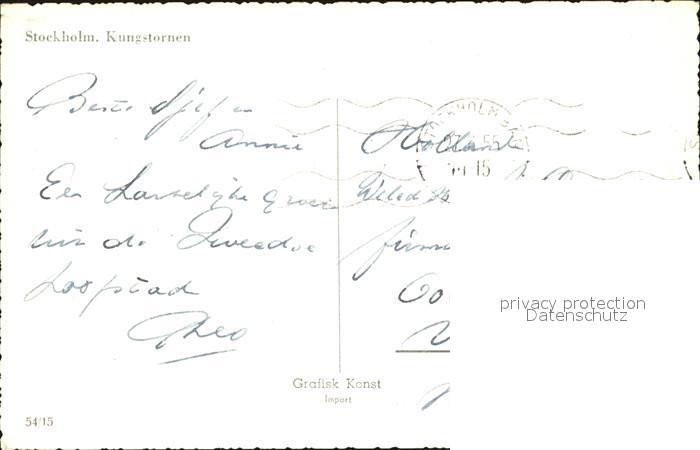 Stockholm. Kungstornen
Beste Sjef en
Annie
Een hartelijke groet
uit de Zweedse
hoofdstad
Theo
STOCKHOLM
15
Holland
Weled
firma
Grafisk Konst
Import
54/15
privacy protection
Datenschutz